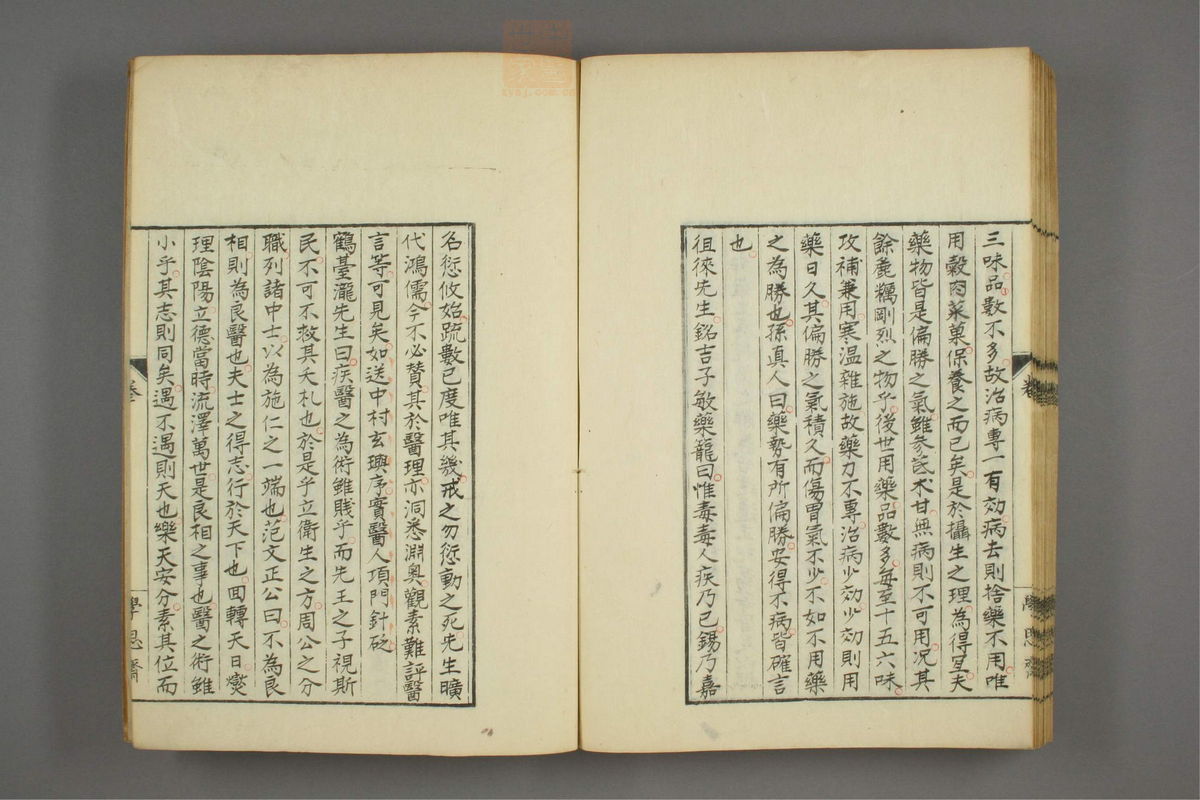 三味品數不多故治病專一有効病去則捨藥不用唯
用穀肉菜菓保養之而已矣是於攝生之理為得宜夫
藥物皆是偏勝之氣雖參芪朮甘無病則不可用况其
餘麁糲剛烈之物乎後世用藥品數多每至十五六味
攻補兼用寒温雜施故藥力不專治病少効少効則用
藥日久其偏勝之氣積久而傷胃氣不少不如不用藥
之為勝也孫真人曰藥勢有所偏勝安得不病皆確言
也
徂徠先生銘吉子敏藥籠曰惟毒毒人疾乃已錫乃嘉
名愆攸始疏數已度唯其幾戒之勿愆動之死先生曠
代鴻儒今不必贊其於醫理亦洞悉淵奥觀素難評醫
言等可見矣如送中村玄與序實醫人項門針砭
鶴臺瀧先生曰疾醫之為術雖賤乎而先王之子視斯
民不可不救其夭札也於是乎立衛生之方周公之分
職列諸中士以為施仁之一端也范文正公曰不為良
相則為良醫也夫士之得志行於天下也回轉天日燮
理陰陽立德當時流澤萬世是良相之事也醫之術雖
小乎其志則同矣遇不遇則天也樂天安分素其位而
學思齋